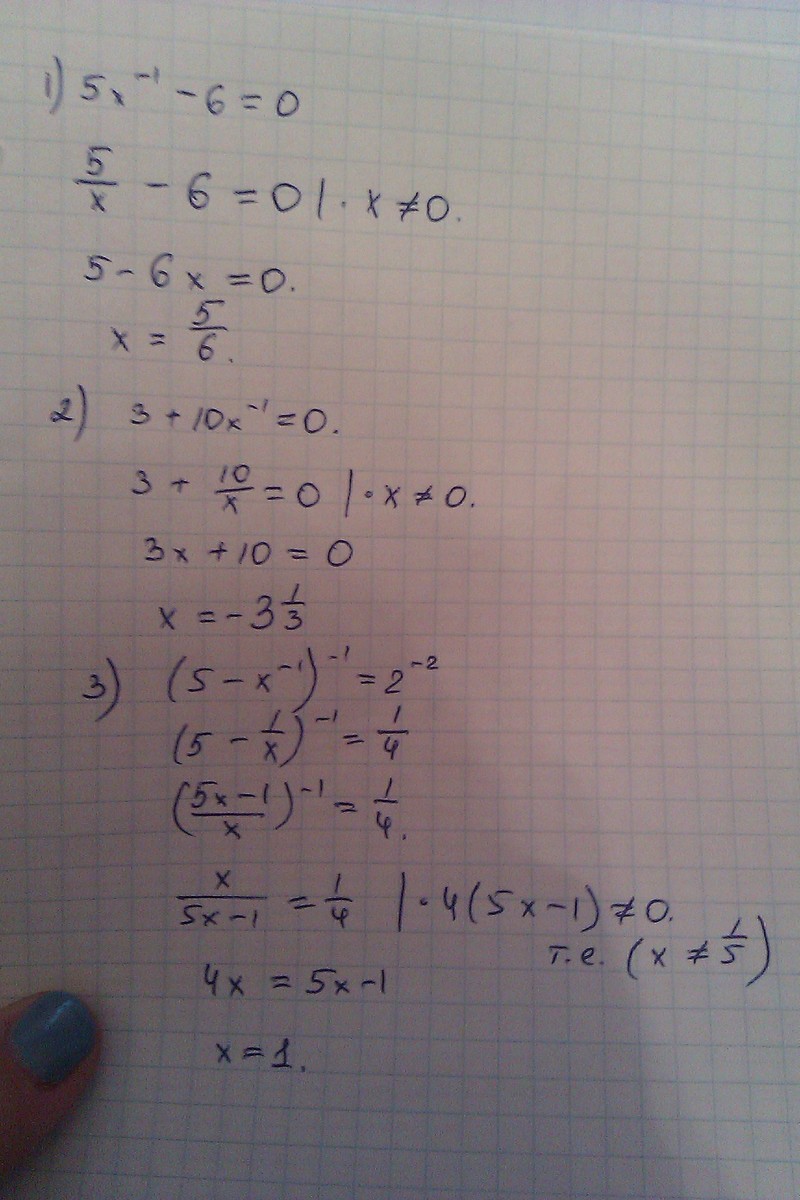 1) 5x⁻¹ - 6 = 0
5/x - 6 = 0 | · x ≠ 0.
5 - 6x = 0.
x = 5/6.
2) 3 + 10x⁻¹ = 0.
3 + 10/x = 0 | · x ≠ 0.
3x + 10 = 0
x = -3 1/3
3) (5 - x⁻¹)⁻¹ = 2⁻²
(5 - 1/x)⁻¹ = 1/4
((5x-1)/x)⁻¹ = 1/4.
x/(5x-1) = 1/4 | · 4(5x-1) ≠ 0.
т.е. (x ≠ 1/5)
4x = 5x-1
x = 1.